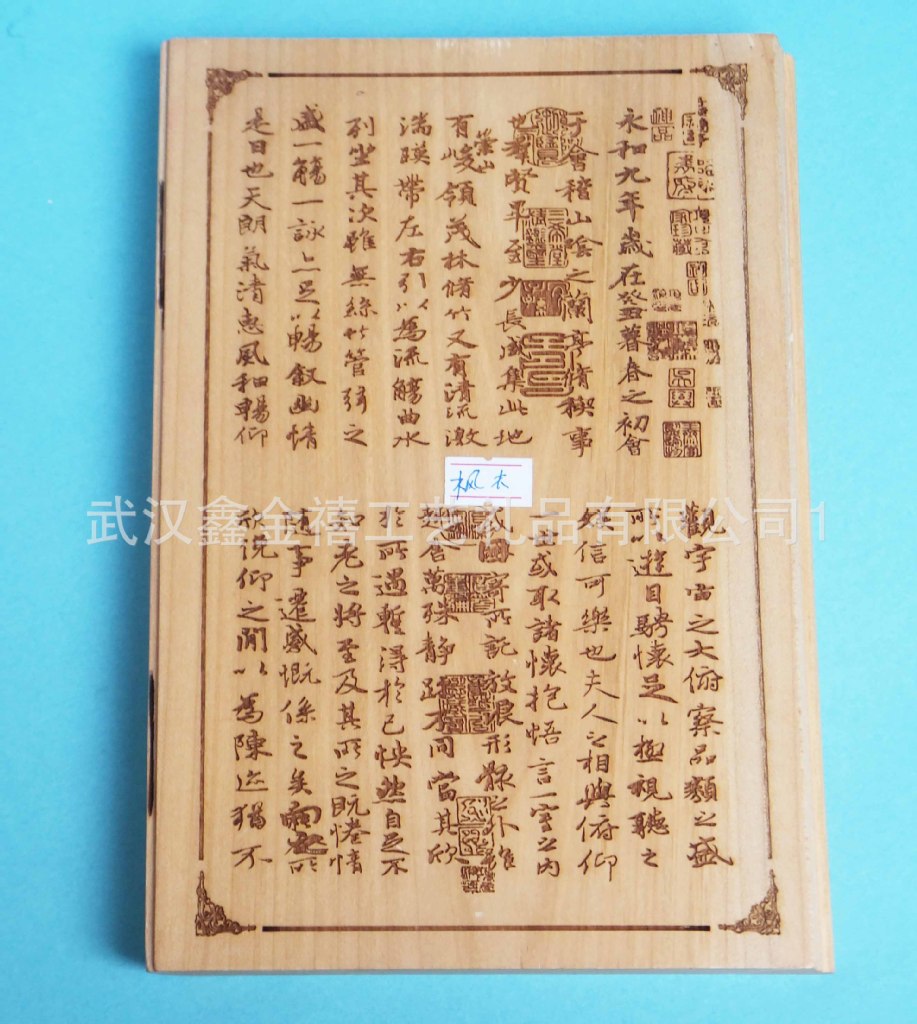 永和九年歲在癸丑暮春之初會
于會稽山陰之蘭亭脩稧事
也羣賢畢至少長咸集此地
有崇山峻領茂林脩竹又有清流激
湍暎帶左右引以為流觴曲水
列坐其次雖無絲竹管弦之
盛一觴一詠亦足以暢敘幽情
是日也天朗氣清惠風和暢仰
枫木
武汉鑫金禧工艺礼品有限公司1
觀宇宙之大俯察品類之盛
所以遊目騁懷足以極視聽之
娛信可樂也夫人之相與俯仰
一世或取諸懷抱悟言一室之內
或因寄所託放浪形骸之外雖
趣舍萬殊靜躁不同當其欣
於所遇蹔得於己怏然自足不
知老之將至及其所之既惓情
隨事遷感慨係之矣向之所
欣俛仰之閒以為陳迹猶不